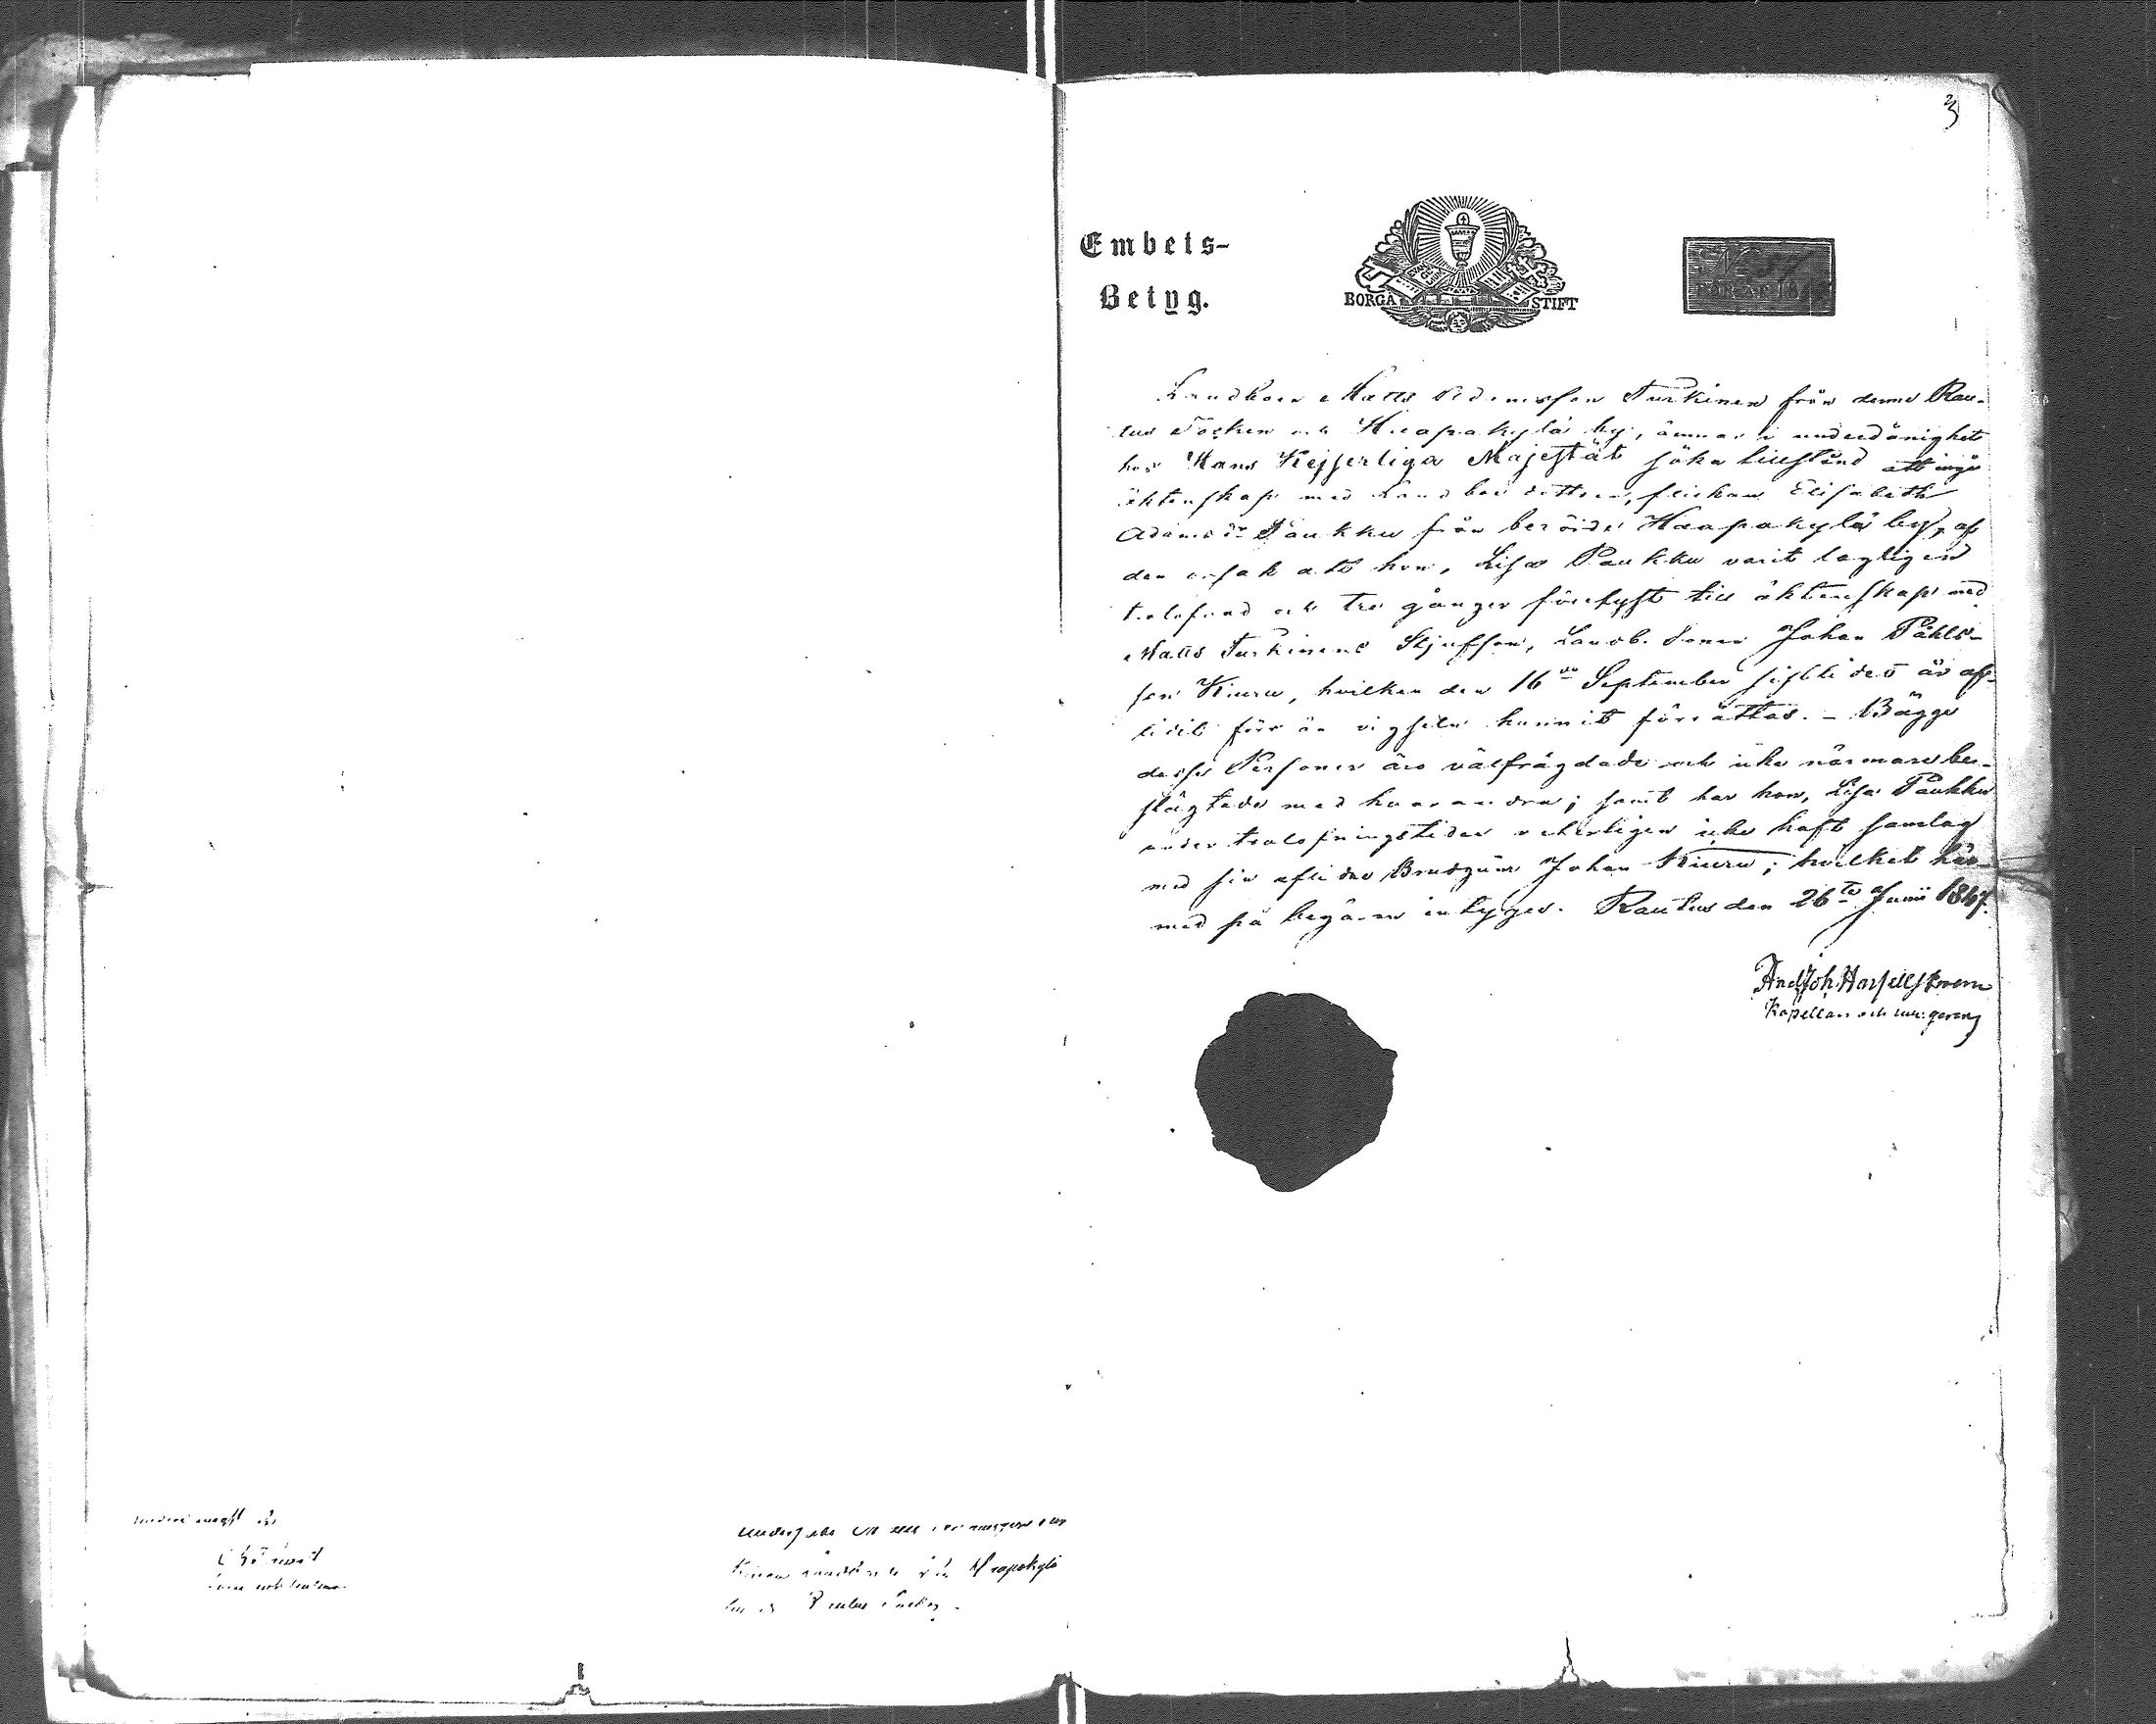 3
Embets-
Betyg.
BORGÅ STIFT
No 87
FÖR ÅR 184
Landboen Matts Turkinen från denne Rau-
tus Socken och Haapakylä by, ämnar i underdånighet
hos Hans Kejserliga Majestät söka tillstånd att ingå
äktenskap med Landboe dottren, flickan Elisabeth
Adamsdr Paukku från berörde Haapakylä by, af
den orsak att hon, Lisa Paukku varit lagligen
trolofvad och tre gånger förelyst till äktenskap med
Matts Turkinens Stjufson, Landb. Sonen Johan Påhls-
son Kiuru, hvilken den 16de September sistledet år af-
lidit förr än vigseln hunnit förrättas. - Bägge
desse Personer äro välfrägdade och icke närmare be-
slägtade med hvarandra; samt har hon, Lisa Paukku
under trolofningstiden veterligen icke haft samlag
med sin aflidne Brudgum Johan Kiuru; hvilket här-
med på begäran intygas. Rautus den 26te Junii 1847.
And Joh.
Kapellan och
Haapakylä
by Rautus Socken.